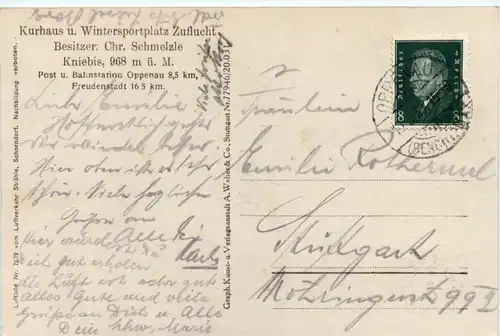 Kurhaus u. Wintersportplatz Zuflucht
Besitzer: Chr. Schmelzle
Kniebis, 968 m ü. M.
Post u. Bahnstation Oppenau 8,5 km,
Freudenstadt 16,5 km.
Liebe Emilie
Hoffentlich geht
Hier oben ist es sehr
schön. Viele herzliche
Grüsse an
Alle
Karl
Hier
dich gut erholen
die Luft ist sehr gut
Alles Gute und viele
Grüsse an Dich u Alle
Dein Schw. Marie
Luftbild Nr. vom Luftverkehr Strähle, Schorndorf. Nachbildung verboten.
Graph. Kunst- u. Verlagsanstalt A. Weber & Co., Stuttgart Nr. 77946/20.035
Deutsches Reich
8
OPPENAU
(RENCHTAL)
Fräulein
Emilie Rothermel
Stuttgart
Möhringerstr 99 II